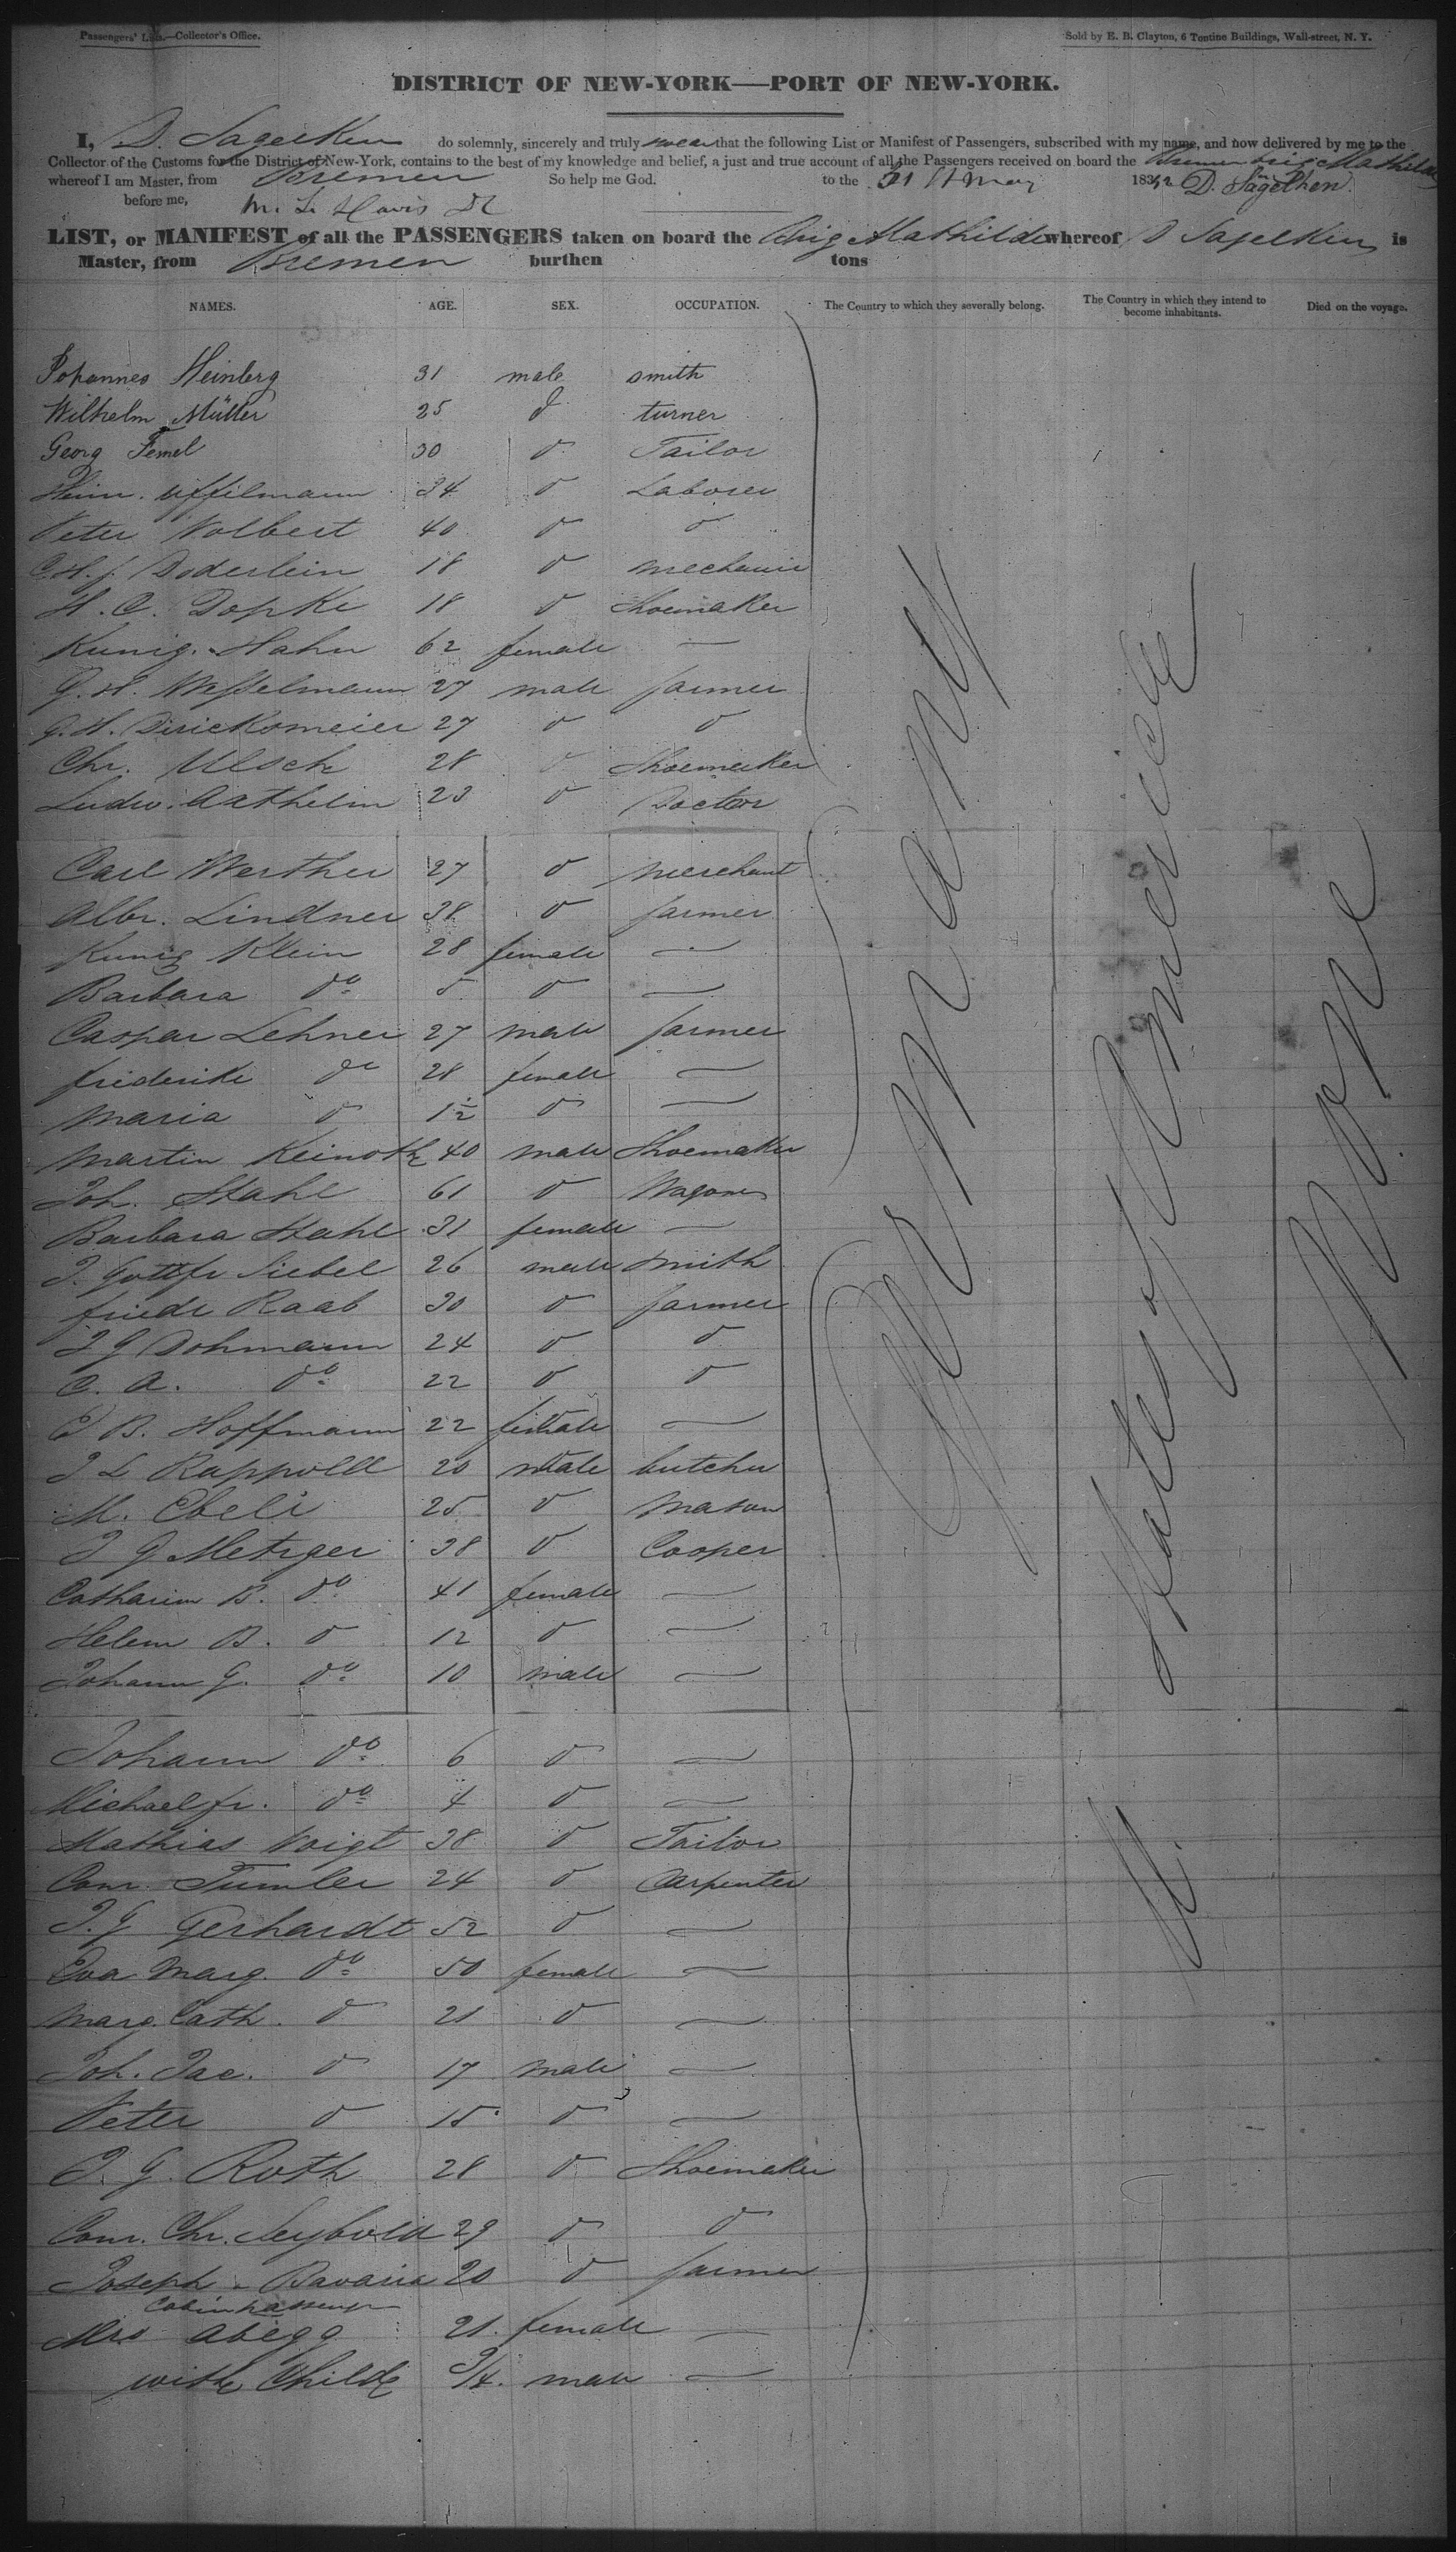 Passengers' List.—Collector's Office.
Sold by E. B. Clayton, 6 Tontine Buildings, Wall-street, N. Y.
DISTRICT OF NEW-YORK—PORT OF NEW-YORK.
I, D. Sagelken do solemnly, sincerely and truly swear that the following List or Manifest of Passengers, subscribed with my name, and now delivered by me to the
Collector of the Customs for the District of New-York, contains to the best of my knowledge and belief, a just and true account of all the Passengers received on board the Bremen brig Mathilde
whereof I am Master, from Bremen So help me God. to the 31st May 1842 D. Sagelken.
before me, M. L. Davis
LIST, or MANIFEST of all the PASSENGERS taken on board the Brig Mathilde whereof D Sagelken is
Master, from Bremen burthen tons
NAMES. AGE. SEX. OCCUPATION. The Country to which they severally belong. The Country in which they intend to become inhabitants. Died on the voyage.
Johannes Heinberg 31 male smith
Wilhelm Müller 25 d turner
Georg Femel 30 d Tailor
Heinr. Uffilmann 34 d Laborer
Peter Volbert 40 d d
C.H.J. Doderlein 18 d mechanic
H. C. Dopke 18 d Shoemaker
Kunig. Hahn 62 female —
G. H. Wesselmann 27 male farmer
G. H. Diricksmeier 27 d d
Chr. Ulsch 28 d Shoemaker
Ludw. 23 d Doctor
Carl Werther 27 d merchant
Albr. Lindner 38 d farmer
Kunig Klein 28 female —
Barbara do 5 d —
Caspar Lehner 27 male farmer
friederike do 28 female —
Maria d 1½ d —
Martin 40 male Shoemaker
Joh. Stahl 61 d Wagoner
Barbara Stahl 31 female —
J. Gottfr Siebel 26 male smith
friedr Raab 30 d farmer
J G Dohmann 24 d d
C. A. do 22 d d
E B. Hoffmann 22 female —
J L Rappold 20 male butcher
M. Ebeli 25 d Mason
J G Metzger 38 d Cooper
Catharin B. do 41 female —
Helen B. d 12 d —
Johann G. do 10 male —
Johann do 6 d —
Michael fr. do 4 d —
Mathias Voigt 38 d Tailor
Conr. Tumler 24 d Carpenter
J. G Gerhardt 52 d —
Eva Marg. do 50 female —
Marg. Cath. d 21 d —
Joh. Jac. d 17 male —
Peter d 15 d —
J. G. Roth 28 d Shoemaker
Conr. Chr. Seybold 29 d d
Joseph Bavaria 20 d farmer
Cabin passenger
Mrs Abegg 21. female —
with Child 3/4. male —
Germany
States of America
N.
None